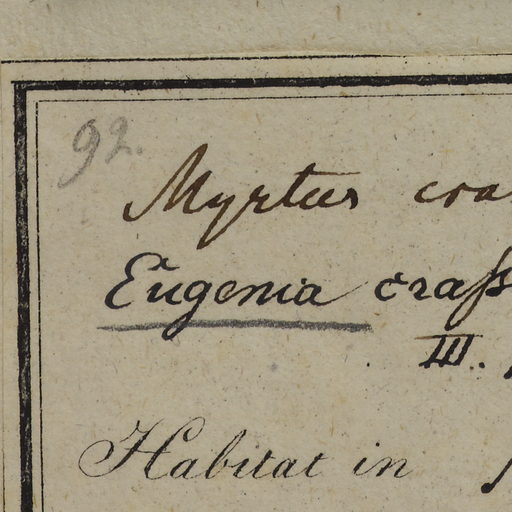 92.
Myrtus cras
Eugenia craſs
III.
Habitat in